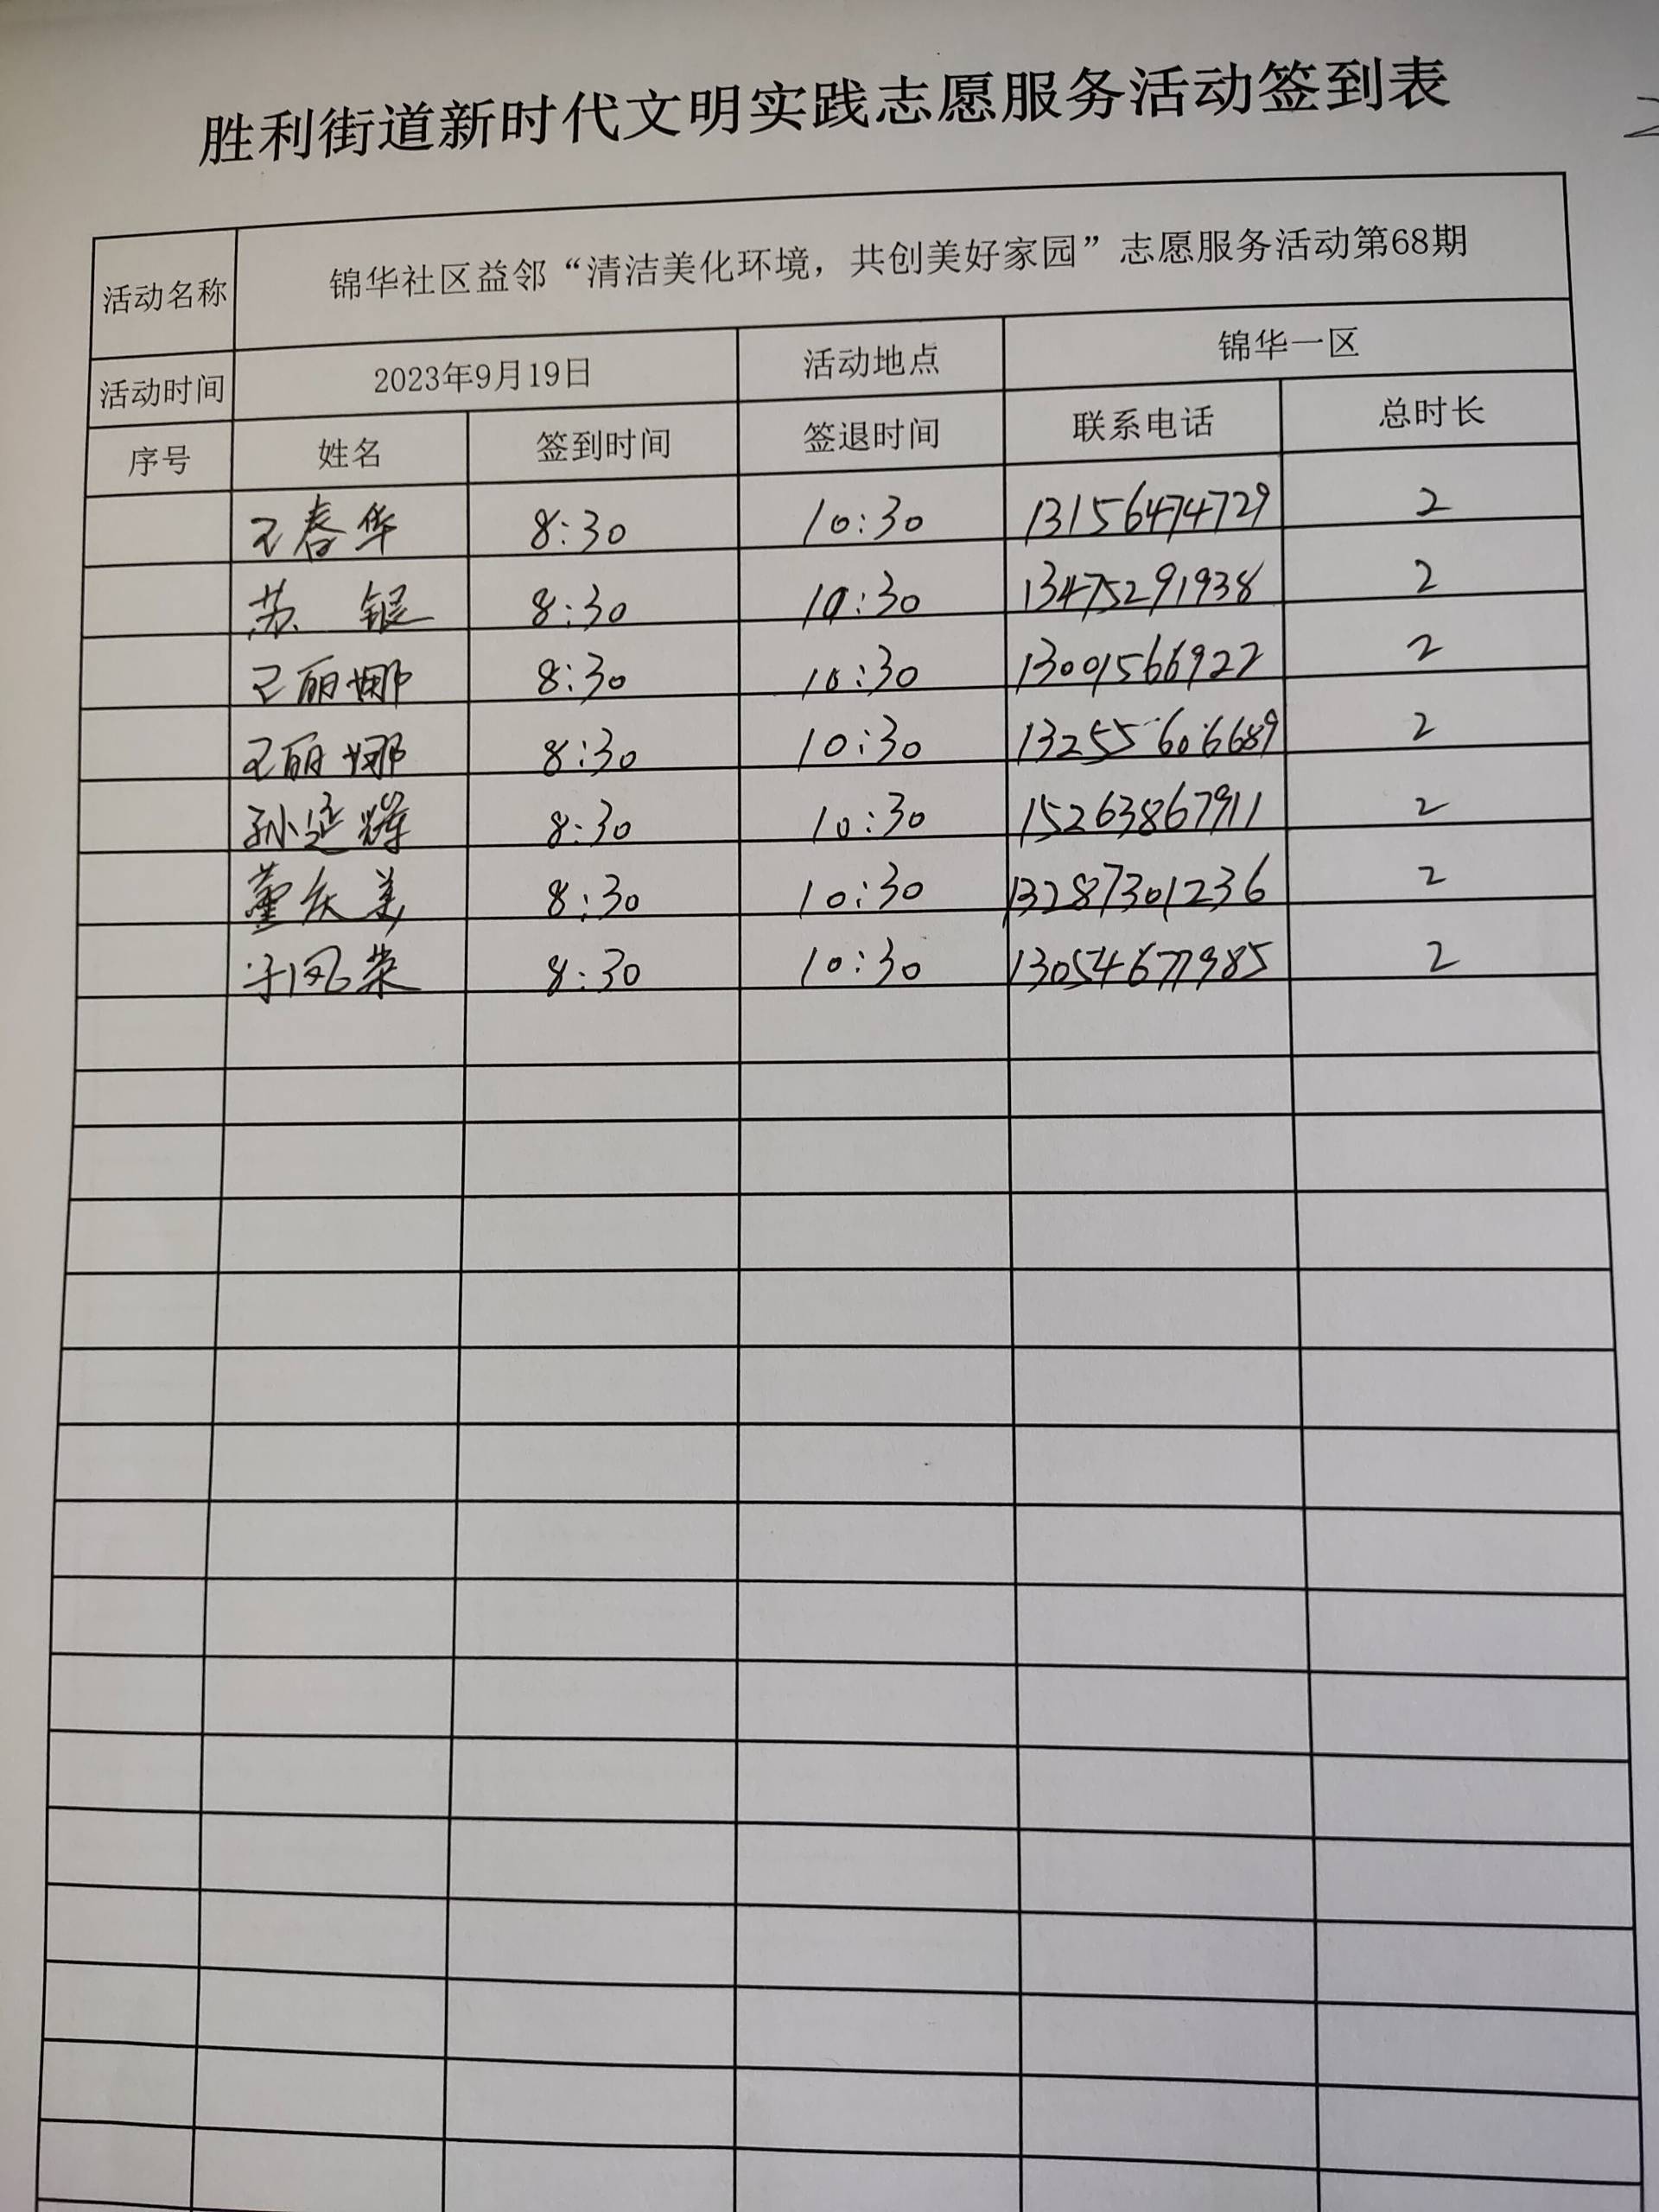 胜利街道新时代文明实践志愿服务活动签到表
活动名称 锦华社区益邻“清洁美化环境，共创美好家园”志愿服务活动第68期
活动时间 2023年9月19日 活动地点 锦华一区
序号 姓名 签到时间 签退时间 联系电话 总时长
王春华 8:30 10:30 13156474729 2
苏 银 8:30 10:30 13475291938 2
王丽娜 8:30 10:30 13001566922 2
王丽娜 8:30 10:30 13255606689 2
孙延辉 8:30 10:30 15263867911 2
董庆美 8:30 10:30 13287301236 2
于凤荣 8:30 10:30 13054677985 2